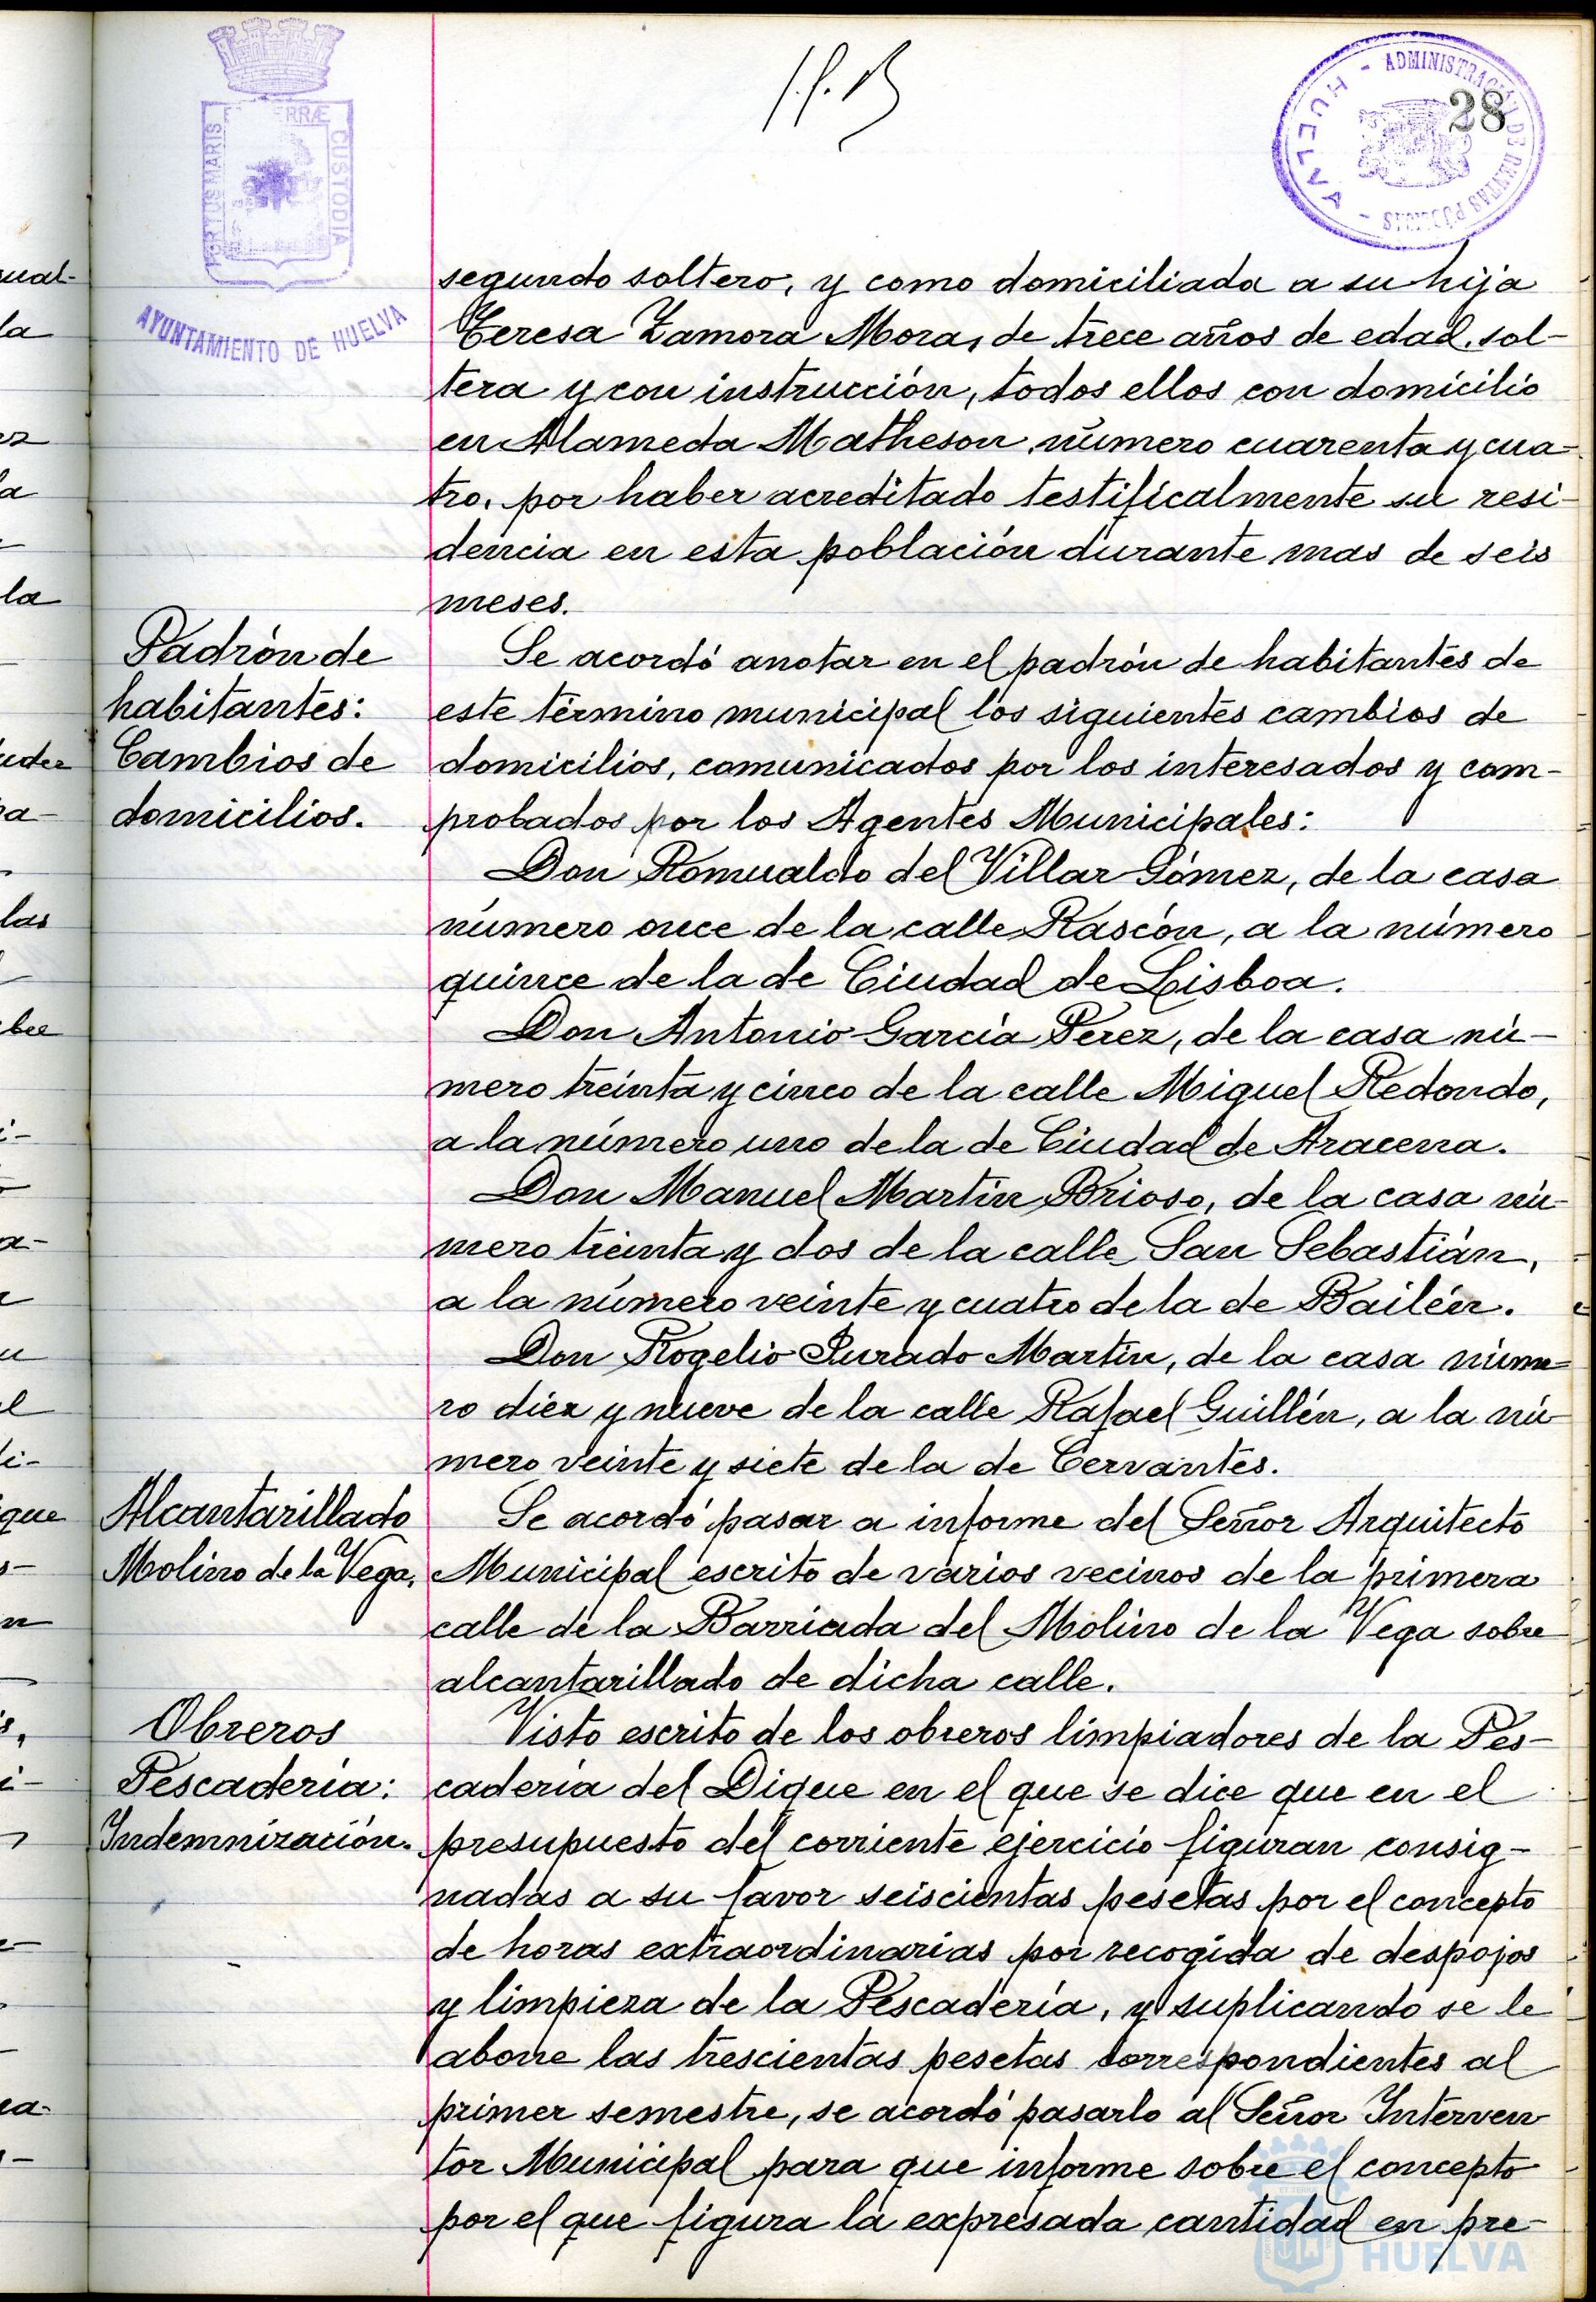 28
ADMINISTRACIÓN DE RENTAS PÚBLICAS
HUELVA
PORTUS MARIS ET TERRÆ CUSTODIA
AYUNTAMIENTO DE HUELVA
segundo soltero, y como domiciliada a su hija
Teresa Zamora Mora, de trece años de edad, sol-
tera y con instrucción, todos ellos con domicilio
en Alameda Matheson número cuarenta y cua-
tro, por haber acreditado testificalmente su resi-
dencia en esta población durante mas de seis
meses.
Padrón de
habitantes:
Cambios de
domicilios.
Se acordó anotar en el padrón de habitantes de
este término municipal los siguientes cambios de
domicilios, comunicados por los interesados y com-
probados por los Agentes Municipales:
Don Romualdo del Villar Gómez, de la casa
número once de la calle Rascón, a la número
quince de la de Ciudad de Lisboa.
Don Antonio García Pérez, de la casa nú-
mero treinta y cinco de la calle Miguel Redondo,
a la número uno de la de Ciudad de Aracena.
Don Manuel Martín Brioso, de la casa nú-
mero treinta y dos de la calle San Sebastián,
a la número veinte y cuatro de la de Bailén.
Don Rogelio Jurado Martín, de la casa núme-
ro diez y nueve de la calle Rafael Guillén, a la nú-
mero veinte y siete de la de Cervantes.
Alcantarillado
Molino de la Vega.
Se acordó pasar a informe del Señor Arquitecto
Municipal escrito de varios vecinos de la primera
calle de la Barriada del Molino de la Vega sobre
alcantarillado de dicha calle.
Obreros
Pescadería:
Indemnización.
Visto escrito de los obreros limpiadores de la Pes-
cadería del Dique en el que se dice que en el
presupuesto del corriente ejercicio figuran consig-
nadas a su favor seiscientas pesetas por el concepto
de horas extraordinarias por recogida de despojos
y limpieza de la Pescadería, y suplicando se le
abone las trescientas pesetas correspondientes al
primer semestre, se acordó pasarlo al Señor Interven
tor Municipal para que informe sobre el concepto
por el que figura la expresada cantidad en pre-
HUELVA